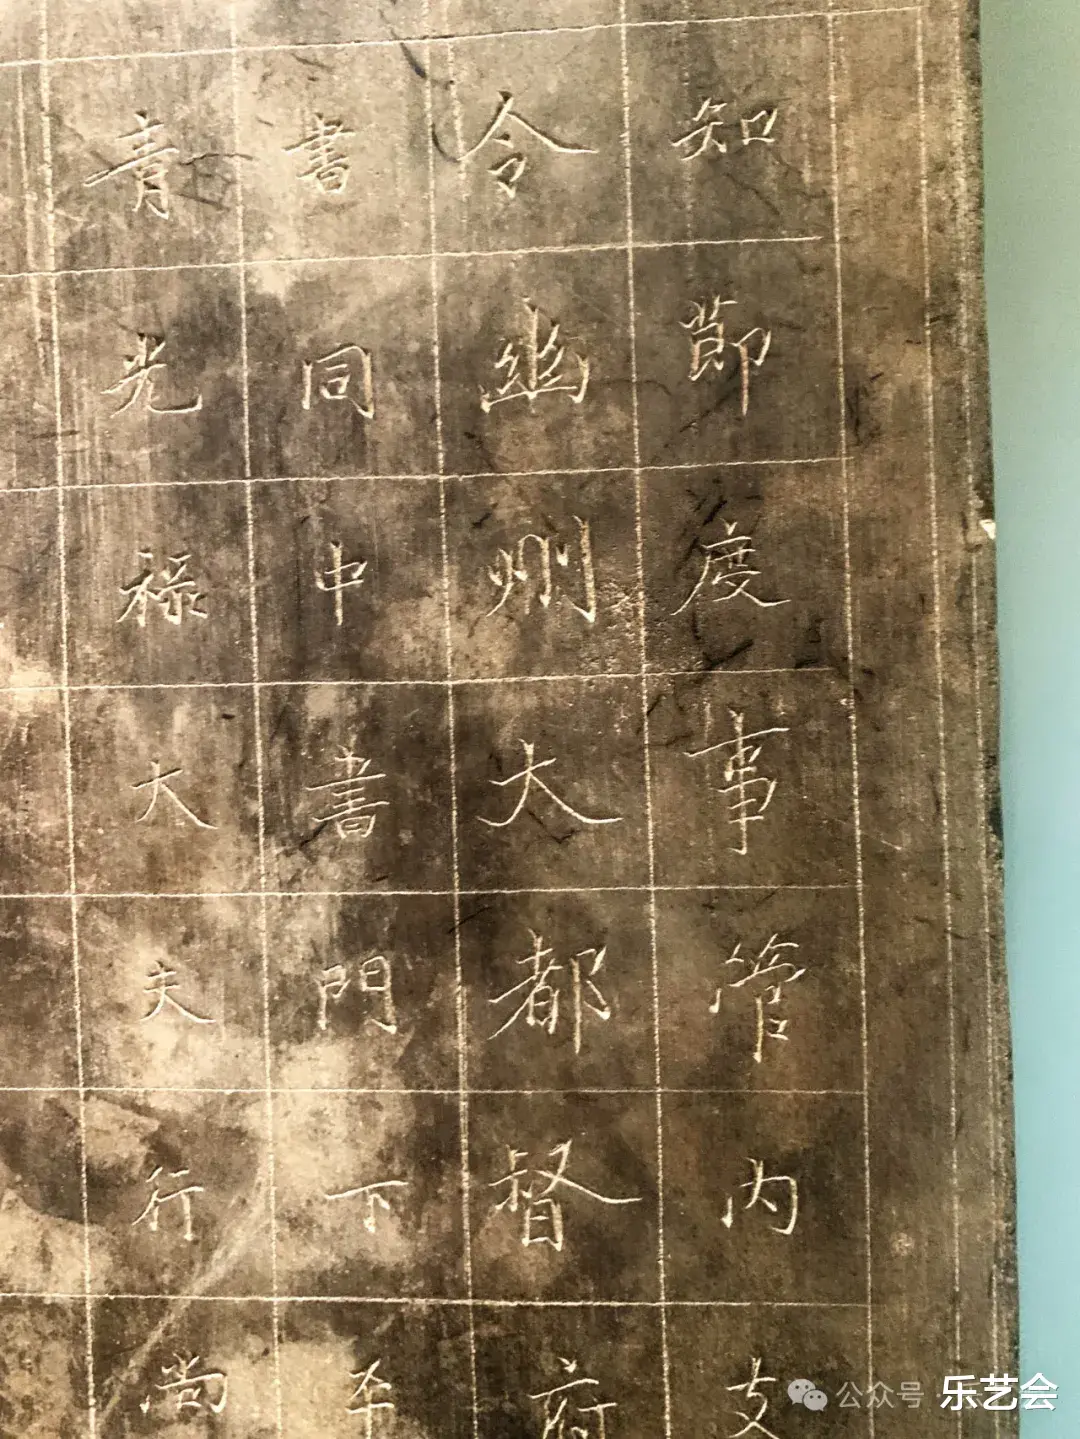 知節度事管内支
令幽州大都督府
書同中書門下平
青光禄大夫行尚
公众号·乐艺会